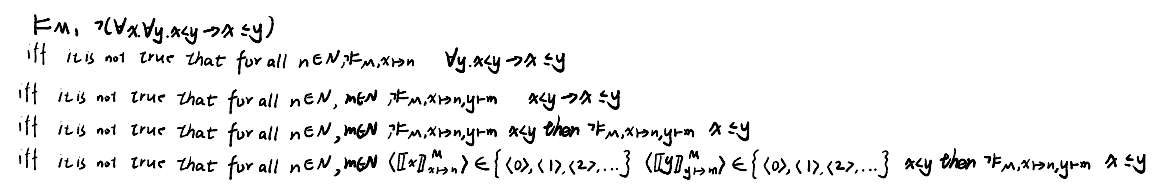 ⊨M, ¬(∀x.∀y.x<y→x≤y)
iff it is not true that for all n∈N,⊭M,x↦n ∀y.x<y→x≤y
iff it is not true that for all n∈N, m∈N ,⊭M,x↦n,y↦m x<y→x≤y
iff it is not true that for all n∈N,m∈N ,⊭M,x↦n,y↦m x<y then ⊭M,x↦n,y↦m x≤y
iff it is not true that for all n∈N,m∈N ⟨⟦x⟧ᴹx↦n⟩∈{⟨0⟩,⟨1⟩,⟨2⟩,...} ⟨⟦y⟧ᴹy↦m⟩∈{⟨0⟩,⟨1⟩,⟨2⟩,...} x<y then ⊭M,x↦n,y↦m x≤y